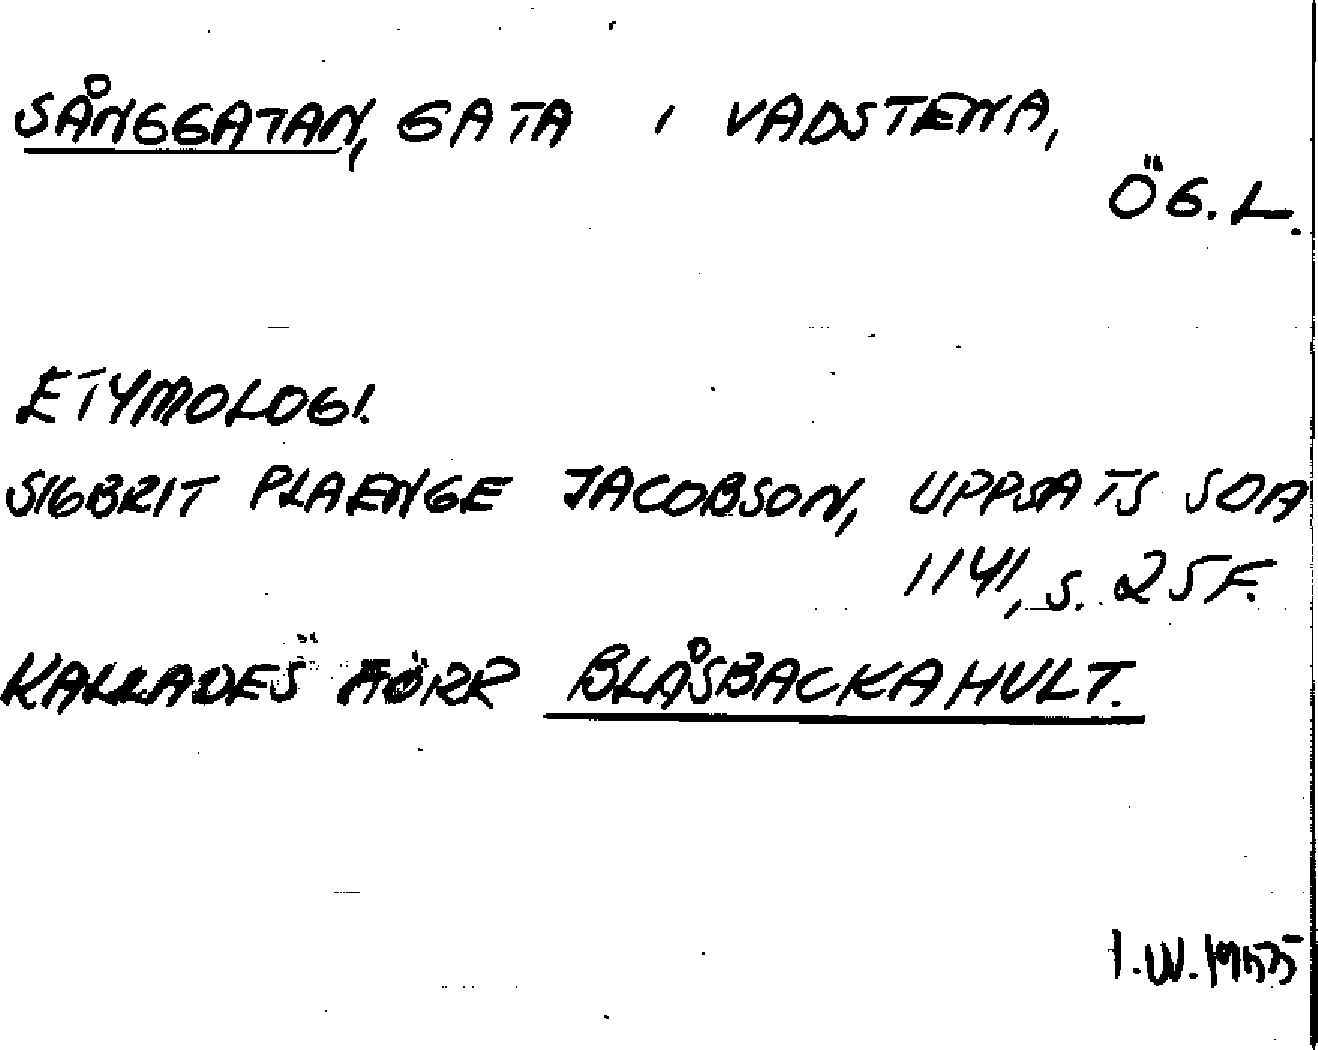 SÅNGGATAN, GATA I VADSTENA,
ÖG. L.
ETYMOLOGI.
SIGBRIT PLAENGE JACOBSON, UPPSATS SOA
1141, S. 25 F.
KALLADES FÖRR BLÅSBACKAHULT.
I.W.